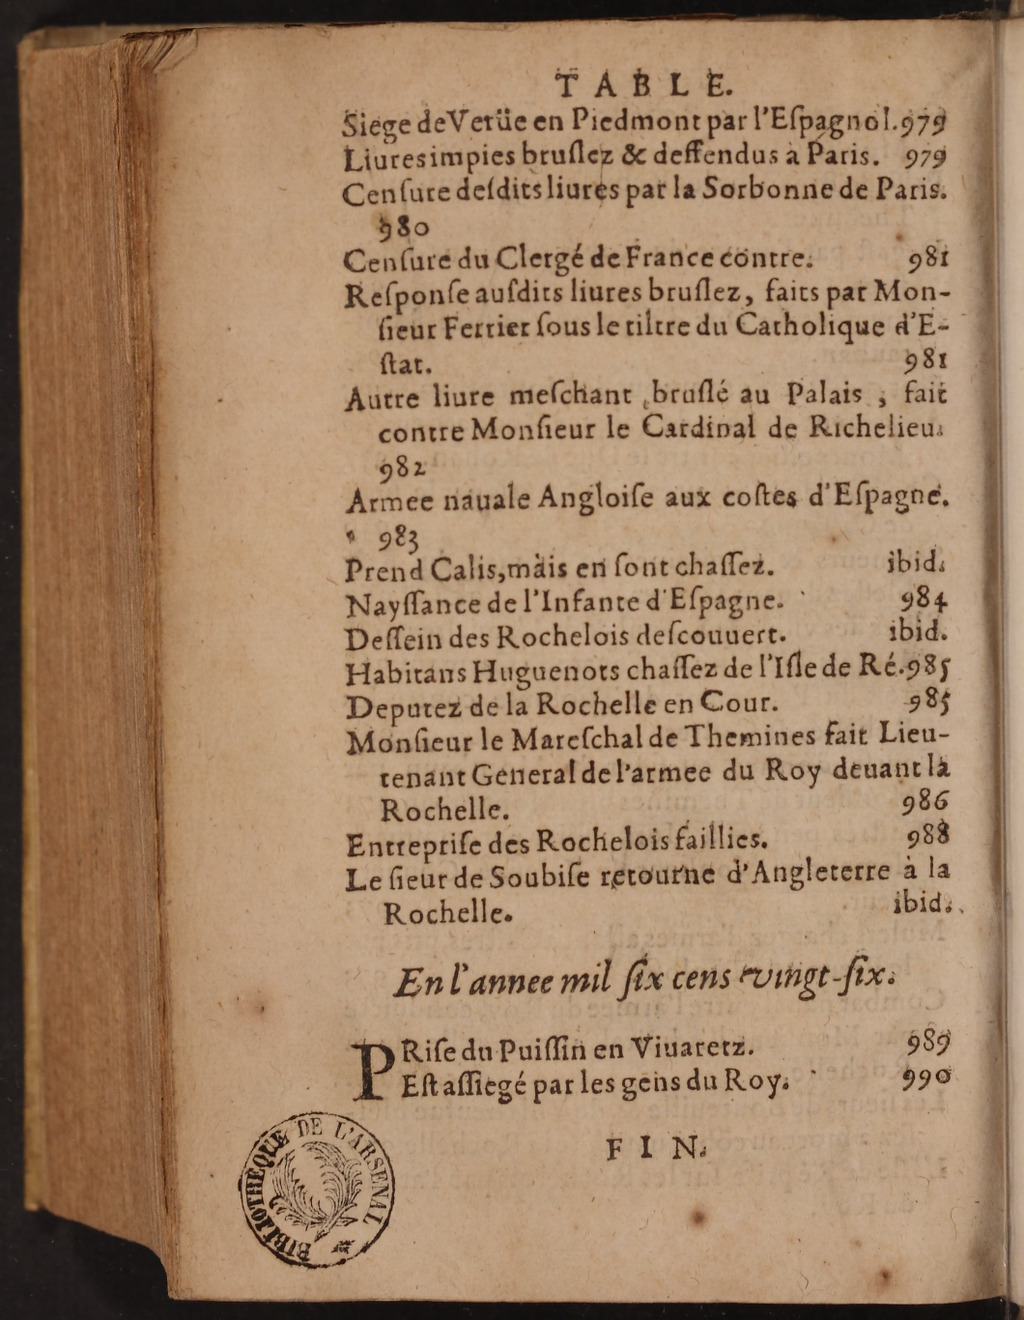 TABLE.
Siege de Verüe en Piedmont par l'Eſpagnol. 979
Liures impies bruſlez & deffendus à Paris. 979
Cenſure deſdits liures par la Sorbonne de Paris.
980
Cenſure du Clergé de France contre. 981
Reſponſe auſdits liures bruſlez, faits par Mon-
ſieur Ferrier ſous le tiltre du Catholique d'E-
ſtat. 981
Autre liure meſchant bruſlé au Palais, fait
contre Monſieur le Cardinal de Richelieu.
982
Armee nauale Angloiſe aux coſtes d'Eſpagne.
983
Prend Calis, mais en ſont chaſſez. ibid.
Nayſſance de l'Infante d'Eſpagne. 984
Deſſein des Rochelois deſcouuert. ibid.
Habitans Huguenots chaſſez de l'Iſle de Ré. 985
Deputez de la Rochelle en Cour. 985
Monſieur le Mareſchal de Themines fait Lieu-
tenant General de l'armee du Roy deuant la
Rochelle. 986
Entrepriſe des Rochelois faillies. 988
Le ſieur de Soubiſe retourné d'Angleterre à la
Rochelle. ibid.
En l'annee mil ſix cens vingt-ſix.
PRiſe du Puiſſin en Viuaretz. 989
Eſt aſſiegé par les gens du Roy. 990
FIN.
BIBLIOTHEQUE DE L'ARSENAL